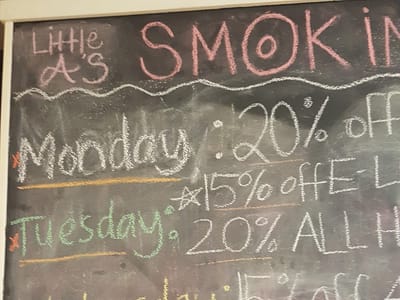 Little
A's
SMOKIN
Monday: 20% off
☆15% off E-L
Tuesday: 20% ALL H
15% off